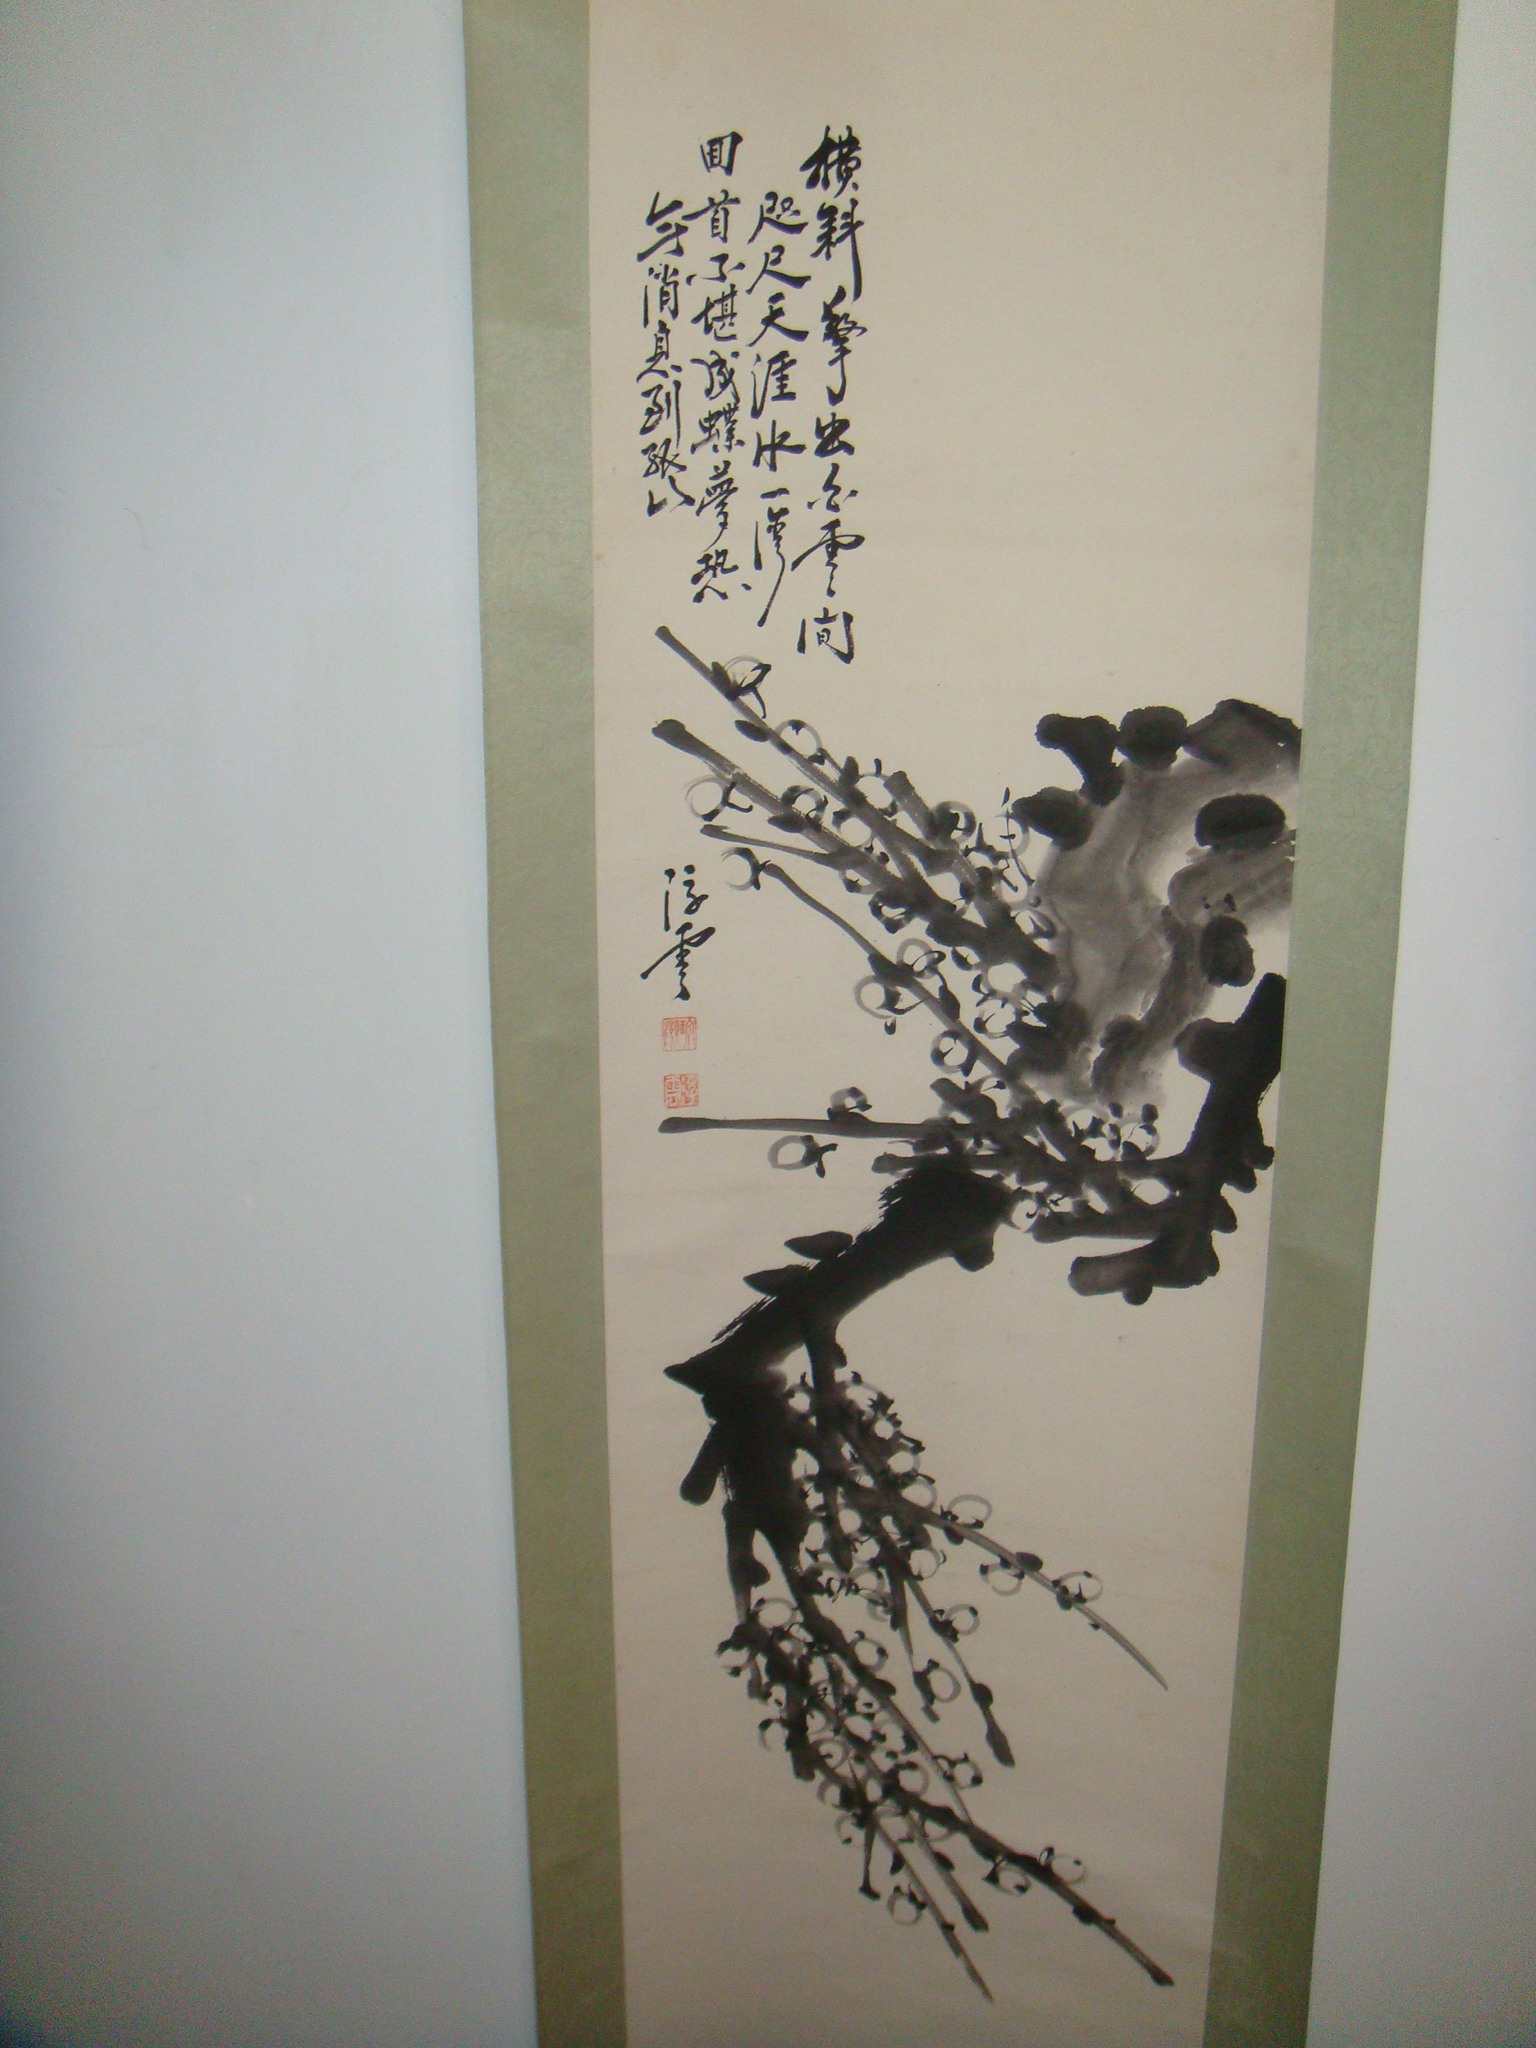 橫斜擎出白雲間
咫尺天涯水一灣
回首不堪成蝶夢恐
無消息到孤山
浮雲